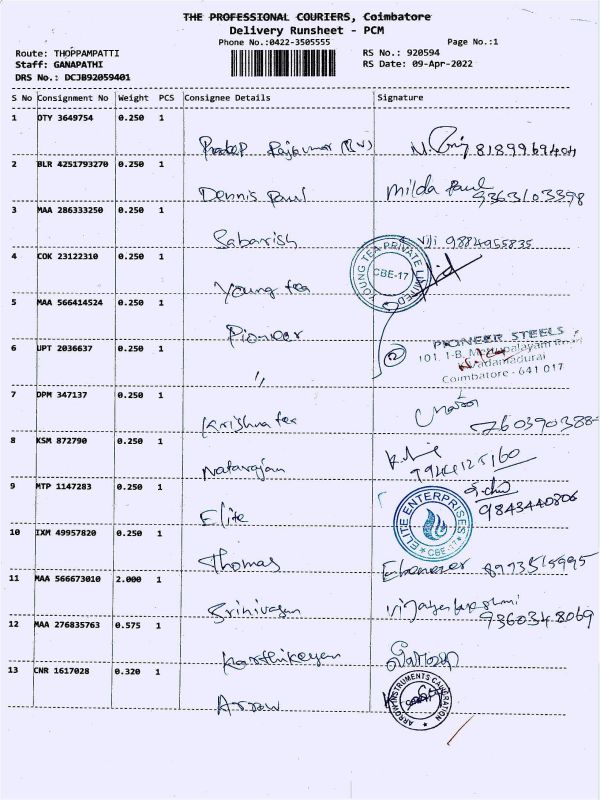 THE PROFESSIONAL COURIERS, Coimbatore
Delivery Runsheet - PCM
Phone No.:0422-3505555 Page No.:1
Route: THOPPAMPATTI RS No.: 920594
Staff: GANAPATHI RS Date: 09-Apr-2022
DRS No.: DCJB92059401
S No Consignment No Weight PCS Consignee Details Signature
1 OTY 3649754 0.250 1
Pradeep Rajkumar (RVS) 8189969404
2 BLR 4251793270 0.250 1
Dennis Paul Milda Paul
9363103398
3 MAA 286333250 0.250 1
Sabarish Viji 9884955835
4 COK 23122310 0.250 1
YOUNG TEA PRIVATE LIMITED
CBE-17
Young tea
5 MAA 566414524 0.250 1
Pioneer
PIONEER STEELS
6 UPT 2036637 0.250 1
101, 1-B, Mettupalayam Road
Vadamadurai
Coimbatore - 641 017
"
7 DPM 347137 0.250 1
Krishna tex
760390388
8 KSM 872790 0.250 1
Natarajan
9 MTP 1147283 0.250 1
ELITE ENTERPRISES
CBE-17
Elite 9843440806
10 IXM 49957820 0.250 1
Thomas Ebenezer 8973515995
11 MAA 566673010 2.000 1
Srinivasan Vijayalakshmi
9360348069
12 MAA 276835763 0.575 1
Karthikeyan
13 CNR 1617028 0.320 1
ARROW INSTRUMENTS CALIBRATION
Arrow